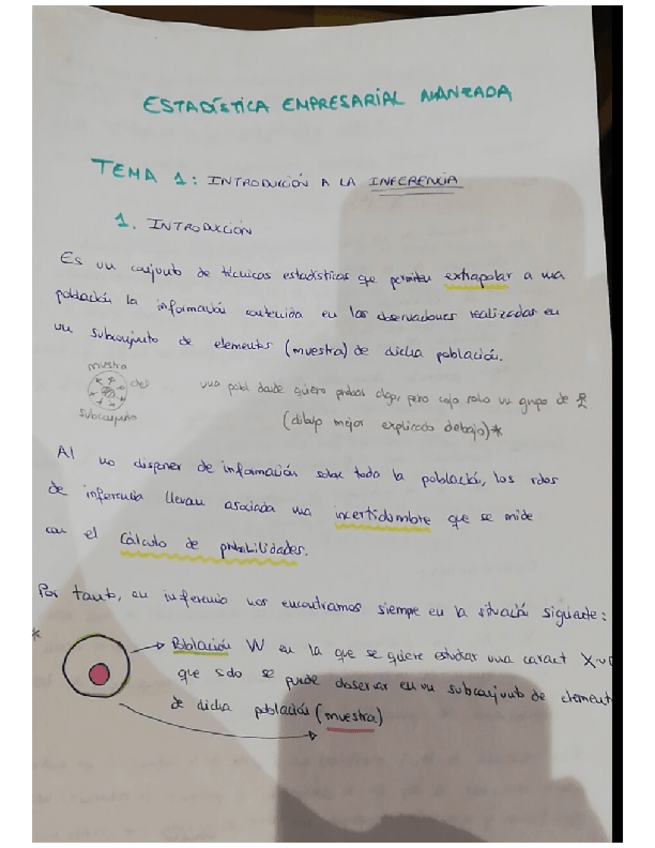 ESTADÍSTICA EMPRESARIAL AVANZADA
TEMA 1: INTRODUCCIÓN A LA INFERENCIA
1. INTRODUCCIÓN
Es un conjunto de técnicas estadísticas que permiten extrapolar a una
población la información contenida en las observaciones realizadas en
un subconjunto de elementos (muestra) de dicha población.
muestra
del
subconjunto
una pobl donde quiero probar algo, pero cojo solo un grupo de
(dibujo mejor explicado debajo)*
Al no disponer de información sobre toda la población, los rdos
de inferencia llevan asociada una incertidumbre que se mide
con el Cálculo de probabilidades.
Por tanto, en inferencia nos encontramos siempre en la situación siguiente:
*
Población W en la que se quiere estudiar una caract X~
que solo se puede observar en un subconjunto de element
de dicha población (muestra)